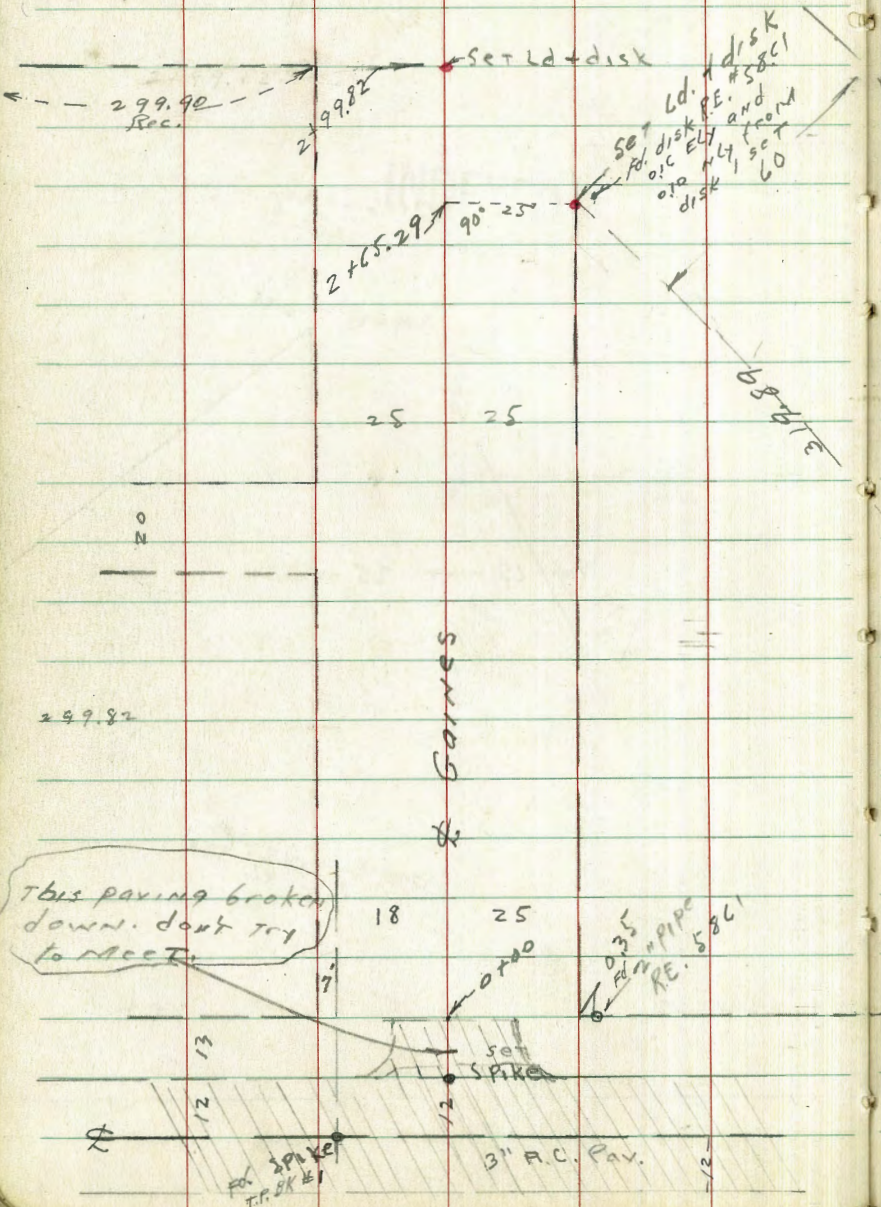 Set Ld + disk
299.90
Rec.
2+99.82
Set Ld. + disk
Fd. disk R.E. #5861
o.i.c ELY and
NLY from
disk I set
60
2+65.29
90° 25
319.89
25 25
20
299.82
℄ Gaines
This paving broken
down. don't Try
to Meet.
18 25
17'
0+00
0.35
Fd. 2" PIPE
R.E. 5861
13
set
Spike
12
12
℄
Fd. Spike
T.P. BK #1
3" A.C. Pav.
-12-